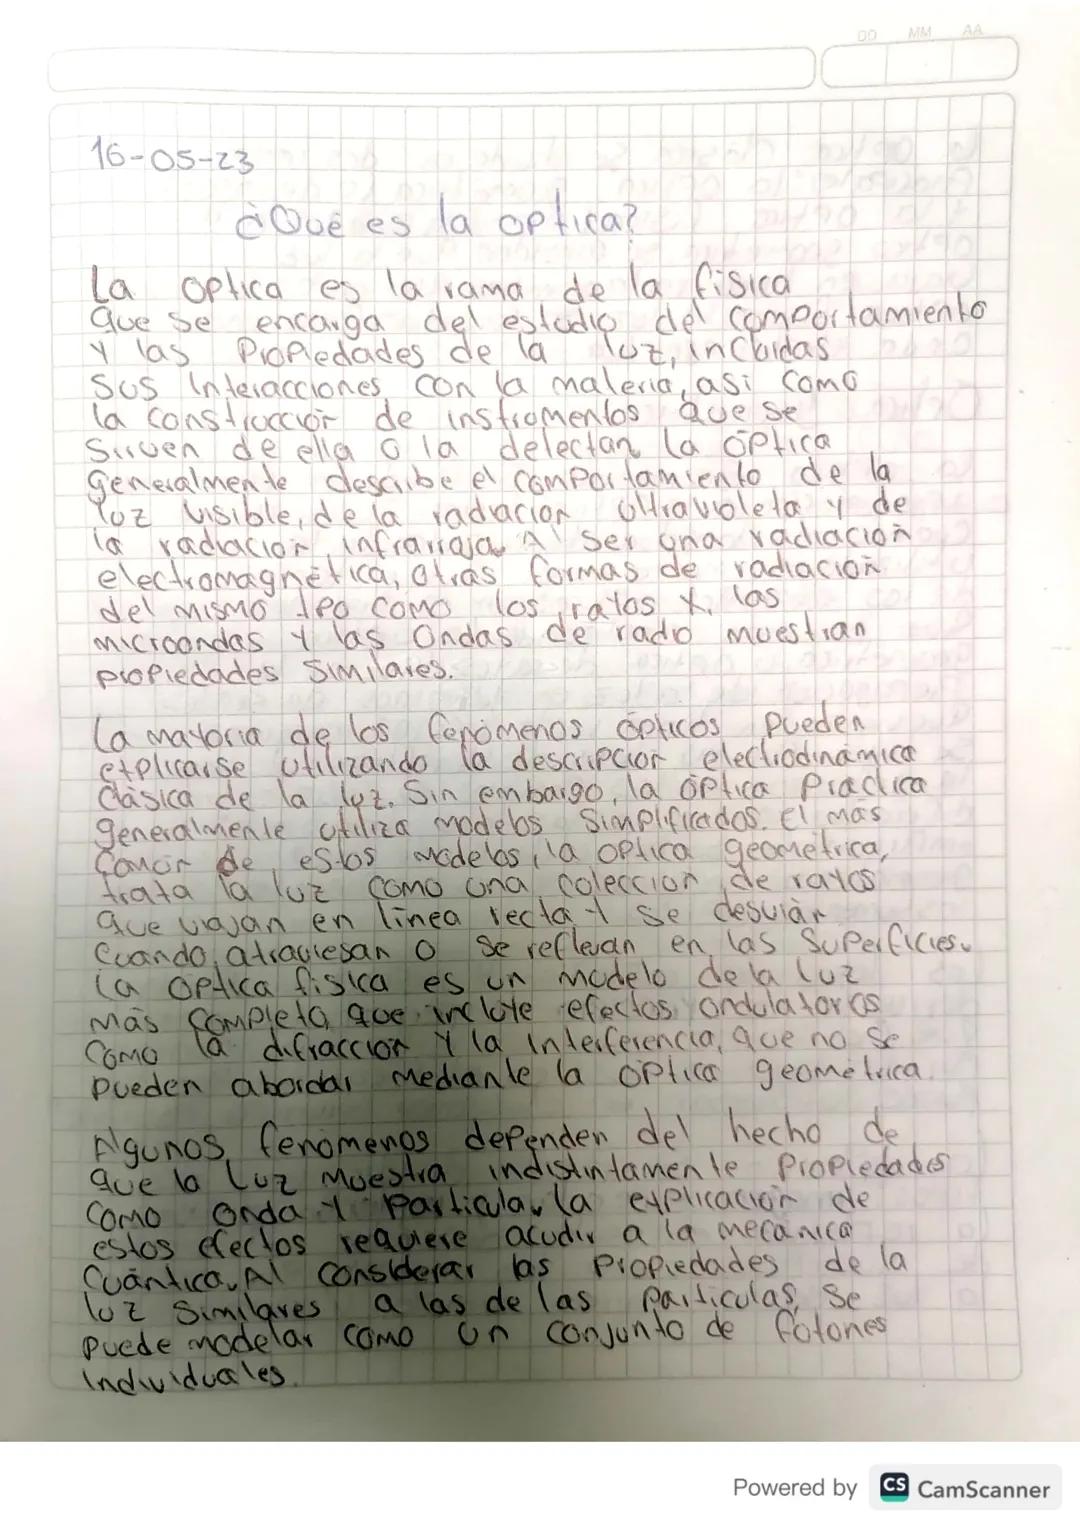 DD MM AA
16-05-23
¿Qué es la optica?
La optica es la rama de la física
que se encarga del estudio del comportamiento
y las Propiedades de la luz, incluidas
sus interacciones con la materia, asi como
la construccion de instrumentos que se
sirven de ella o la detectan. La óptica
generalmente describe el comportamiento de la
luz visible, de la radiacion ultravioleta y de
la radiacion infrarroja. Al ser una radiación
electromagnética, otras formas de radiación
del mismo tipo como los rayos X, las
microondas y las ondas de radio muestran
propiedades similares.
La mayoria de los fenómenos ópticos pueden
explicarse utilizando la descripcion electrodinámica
clásica de la luz. Sin embargo, la óptica Practica
generalmente utiliza modelos simplificados. El más
comun de estos modelos, la optica geometrica,
trata la luz como una coleccion de rayos
que viajan en línea recta y se desvián
cuando atraviesan o se reflejan en las superficies.
la optica física es un modelo de la luz
más completa, que incluye efectos ondulatorios
como la difraccion y la interferencia, que no se
pueden abordar mediante la óptica geométrica.
Algunos fenomenos dependen del hecho de
que la luz muestra indistintamente Propiedades
como onda y particula, la explicación de
estos efectos requiere acudir a la mecánica
Cuántica. Al considerar las Propiedades de la
luz similares a las de las particulas, se
puede modelar como un conjunto de fotones
individuales.
Powered by CS CamScanner